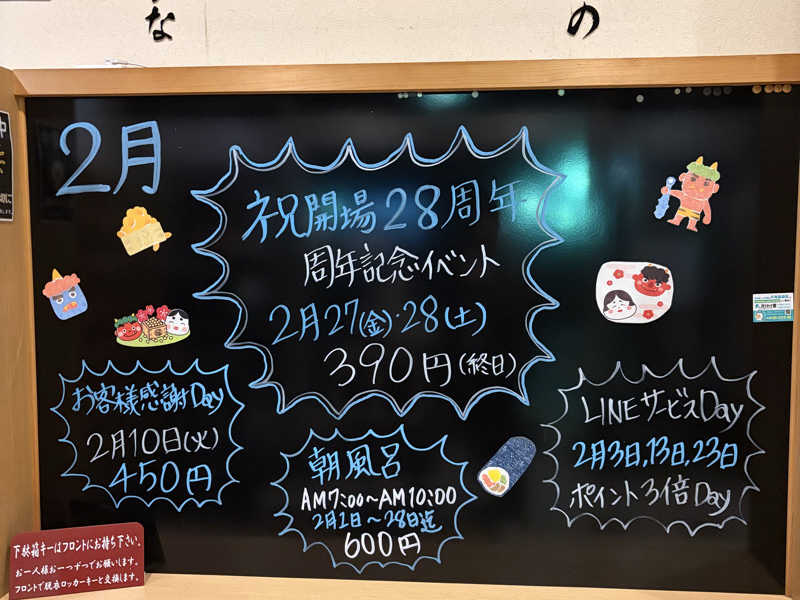 な
の
2月
祝開場28周年
周年記念イベント
2月27(金)・28(土)
390円(終日)
お客様感謝Day
2月10日(火)
450円
朝風呂
AM7:00～AM10:00
2月1日～28日迄
600円
LINEサービスDay
2月3日,13日,23日
ポイント3倍Day
下駄箱キーはフロントにお持ち下さい。
お一人様お一つずつでお願いします。
フロントで脱衣ロッカーキーと交換します。